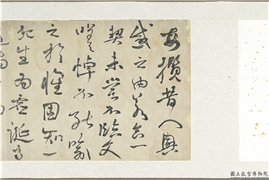 每攬昔人興
感之由若合一
契未嘗不臨文
嗟悼不能喻
之於懷固知一
死生為虛誕齊
國立故宮博物院